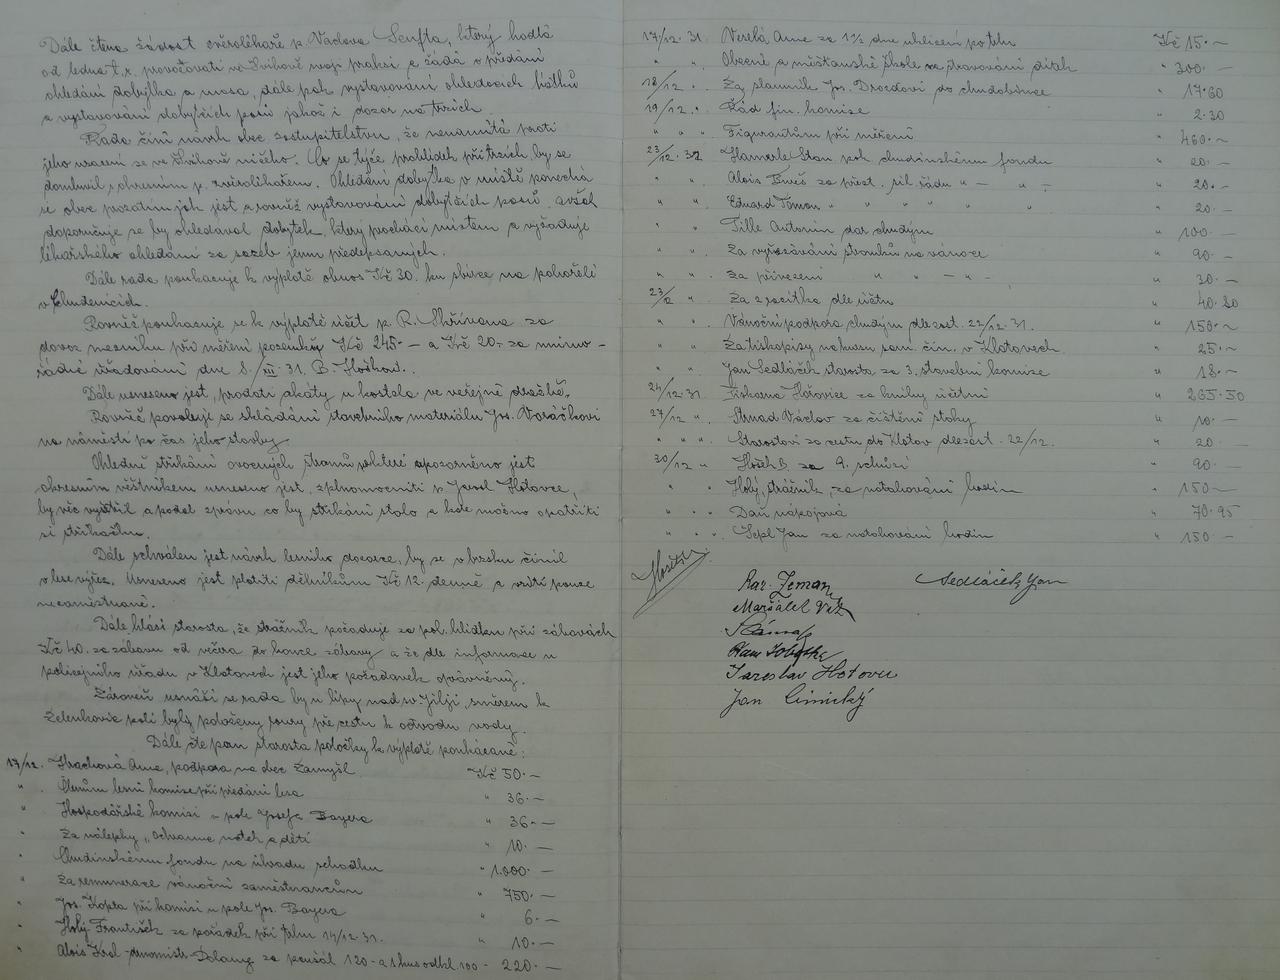 Dále čtena žádost zvěrolékaře p. Václava Senfta, který hodlá
od ledna t. r. provozovati ve Švihově svoji praksi a žádá o předání
ohledání dobytka a masa, dále pak vystavování ohledacích lístků
a vystavování dobytčích pasů jakož i dozor na trzích.
Rada činí návrh obec. zastupitelstvu, že nenamítá proti
jeho usazení se ve Švihově ničeho. Co se týče prohlídek při trzích, by se
domluvil s okresním p. zvěrolékařem. Ohledání dobytka v místě ponechá
si obec prozatím jak jest a rovněž vystavování dobytčích pasů, avšak
doporučuje se by ohledával dobytek, který prochází místem a vyžaduje
lékařského ohledání za sazeb jemu předepsaných.
Dále rada poukazuje k výplatě obnos Kč 30. ku sbírce na pohořelé
v Chudenicích.
Rovněž poukazuje se k výplatě účet p. R. Skřivana za
dovoz mezníků při měření pozemků Kč 245.— a Kč 20.- za mimo-
řádné úřadování dne 8./XII. 31. B. Hoškovi.
Dále usneseno jest, prodati akáty u kostela ve veřejné dražbě.
Rovněž povoluje se skládání stavebního materiálu Jos. Voráčkovi
na náměstí po čas jeho stavby.
Ohledně stříkání ovocných stromů na které upozorněno jest
okresním věstníkem usneseno jest, zplnomocniti p. Jarosl. Hotovce,
by věc vyšetřil a podal zprávu co by stříkání stálo a kde možno opatřiti
si stříkačku.
Dále schválen jest návrh lesního dozorce, by se v brzku činil
v lese výřez. Usneseno jest platiti dělníkům Kč 12. denně a vzíti pouze
nezaměstnané.
Dále hlásí starosta, že strážník požaduje za pol. hlídku při zábavách
Kč 40. za zábavu od večera do konce zábavy a že dle informace u
policejního úřadu v Klatovech jest jeho požadavek oprávněný.
Zároveň usnáší se rada by u lípy nad sv. Jiljí, směrem k
Zelenkovic poli byly položeny roury přes cestu k odvodu vody.
Dále čte pan starosta položky k výplatě poukázané:
17/12. Hrachová Anna, podpora na obec Zamyšl. Kč 50.—
" Členům lesní komise při předání lesa " 36.—
" Hospodářské komisi u pole Josefa Bayera " 36.—
" Za nálepky „Ochrana matek a dětí " 10.—
" Chudinskému fondu na úhradu schodku " 1.000.—
" Za remunerace vánoční zaměstnancům " 750.—
" Jos. Kopta při komisi u pole Jos. Bayera " 6.—
" Holý František za pořádek při filmu 14/12. 31. " 10.—
" Alois Krol Dolany za paušál 120.- a 100.- 220.—
17/12. 31. Veselá Anna za 1½ dne uklízení po trhu Kč 15.—
" " Obecné a měšťanské škole na stravování dítek " 300.—
18/12 " Za slamník Jos. Drozdovi do chudobince " 17.60
19/12 " Řád fin. komise " 2.30
" " " Figurantům při měření " 460.—
23/12. 31 Hamerle Stan. pok. chudinskému fondu " 20.—
" " Alois Bureš za přest. sil. řádu " — " — " 20.—
" " Eduard Toman " " " " " " 20.—
" " Tille Antonín dar chudým " 100.—
" " Za vyřezávání stromků na vánoce " 90.—
" " Za přivezení " " — " — " 30.—
23/12 " Za 2 razítka dle účtu " 40.80
" " Vánoční podpora chudým dle zast. 22/12. 31. " 150.—
" " Za tiskopisy na kursu sam. čin. v Klatovech " 25.—
" " Jan Sedláček starosta za 3. stavební komise " 18.—
24/12. 31 Tiskárna Hořovice za knihy účetní " 265.50
27/12 " Strnad Václav za čištění stoky " 10.—
" " " Starostovi za cestu do Klatov dle zast. 22/12. " 20.—
30/12 " Hošek B. za 9. schůzí " 90.—
" " Holý, strážník, za natahování hodin " 150.—
" " Daň nápojová " 70.95
" " " Šepl Jan za natahování hodin " 150.—
Kar. Zeman Sedláček Jan
Maršálek
Jaroslav Hotovec
Jan Cimický